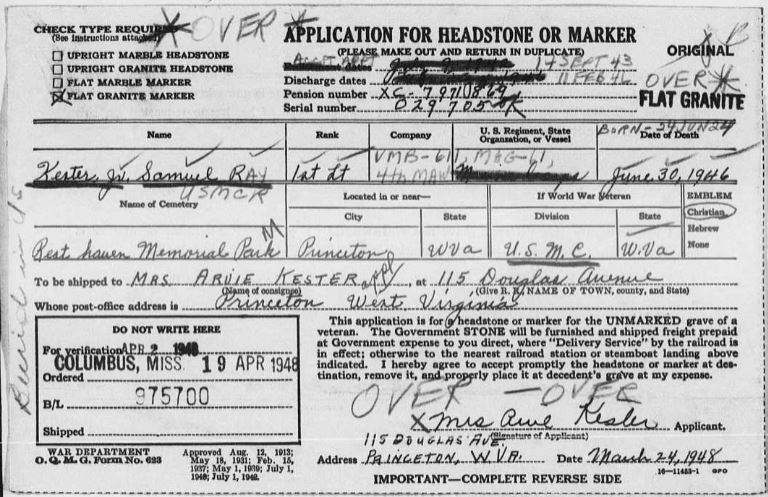 CHECK TYPE REQUIRED
(See instructions attached)
OVER
UPRIGHT MARBLE HEADSTONE
UPRIGHT GRANITE HEADSTONE
FLAT MARBLE MARKER
FLAT GRANITE MARKER
APPLICATION FOR HEADSTONE OR MARKER
(PLEASE MAKE OUT AND RETURN IN DUPLICATE)
17 SEPT 43
Discharge dates 11 FEB 46
Pension number XC-7971869
Serial number 029705 OK
ORIGINAL
OVER
FLAT GRANITE
Name
Rank
Company
U. S. Regiment, State Organization, or Vessel
BORN-24 JUN 24
Date of Death
Kester, Jr. Samuel RAY
USMCR
1st Lt
VMB-611, MAG-61,
4th MAW
June 30, 1946
Name of Cemetery
Located in or near—
City
State
If World War Veteran
Division
State
EMBLEM
Christian
Hebrew
None
Rest haven Memorial Park
Princeton
W Va
U.S.M.C.
W.Va
To be shipped to MRS. ARVIE KESTER, at 115 Douglas Avenue
(Name of consignee)
(Give R. R. NAME OF TOWN, county, and State)
Whose post-office address is Princeton West Virginia
DO NOT WRITE HERE
For verification APR 2 1948
COLUMBUS, MISS. 19 APR 1948
Ordered
B/L 975700
Shipped
This application is for a headstone or marker for the UNMARKED grave of a
veteran. The Government STONE will be furnished and shipped freight prepaid
at Government expense to you direct, where "Delivery Service" by the railroad is
in effect; otherwise to the nearest railroad station or steamboat landing above
indicated. I hereby agree to accept promptly the headstone or marker at des-
tination, remove it, and properly place it at decedent's grave at my expense.
OVER - OVER
X Mrs Arvie Kester Applicant.
(Signature of Applicant)
115 DOUGLAS AVE.
Address PRINCETON, W. VA. Date March 24, 1948
WAR DEPARTMENT
O. Q. M. G. Form No. 623
Approved Aug. 12, 1913;
May 18, 1931; Feb. 15,
1937; May 1, 1939; July 1,
1948; July 1, 1942.
16—11453-1 GPO
IMPORTANT—COMPLETE REVERSE SIDE